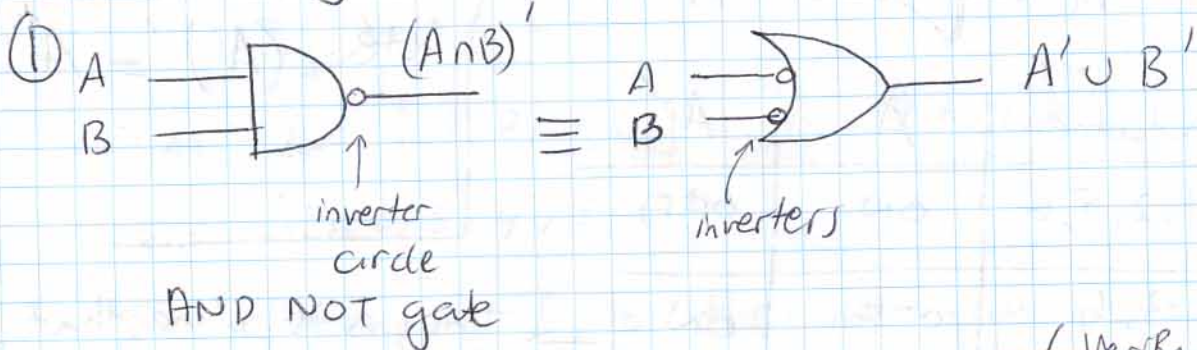 ① A
B
(A∩B)'
inverter
circle
AND NOT gate
≡
A
B
A' ∪ B'
inverters